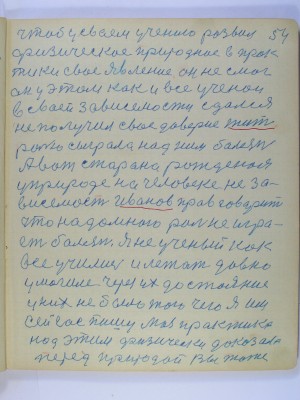 чтоб у своем учению развил 54
физическое природное в прак
тики свое явление он не смог
он у этом как и все ученои
в своей зависимости сдался
не получил свое доверие жит
рожо сыграла над ним болезн
А вот старана рожденая
у природе на человеке не за-
висемост Иванов прав говорит
что надомного рол не игра-
ет болезн Я не ученый как
все училис и летат давно
умоглие через их достояние
у них не было того чего я им
сейчас пишу моя практика
над этим физически доказала
перед природой Вы тоже